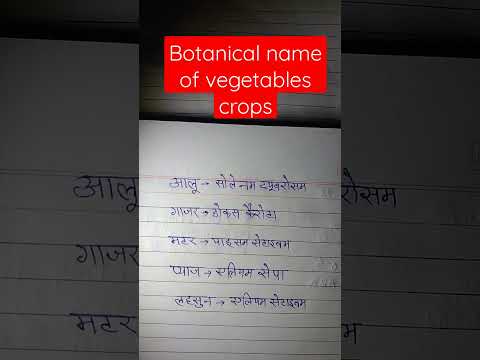 Botanical name
of vegetables
crops
आलू → सोलेनम टयूबरोसम
गाजर → डोकस कैरोटा
मटर → पाइसम सेटाइवम
प्याज → एलियम सेपा
लहसुन → एलियम सेटाइवम